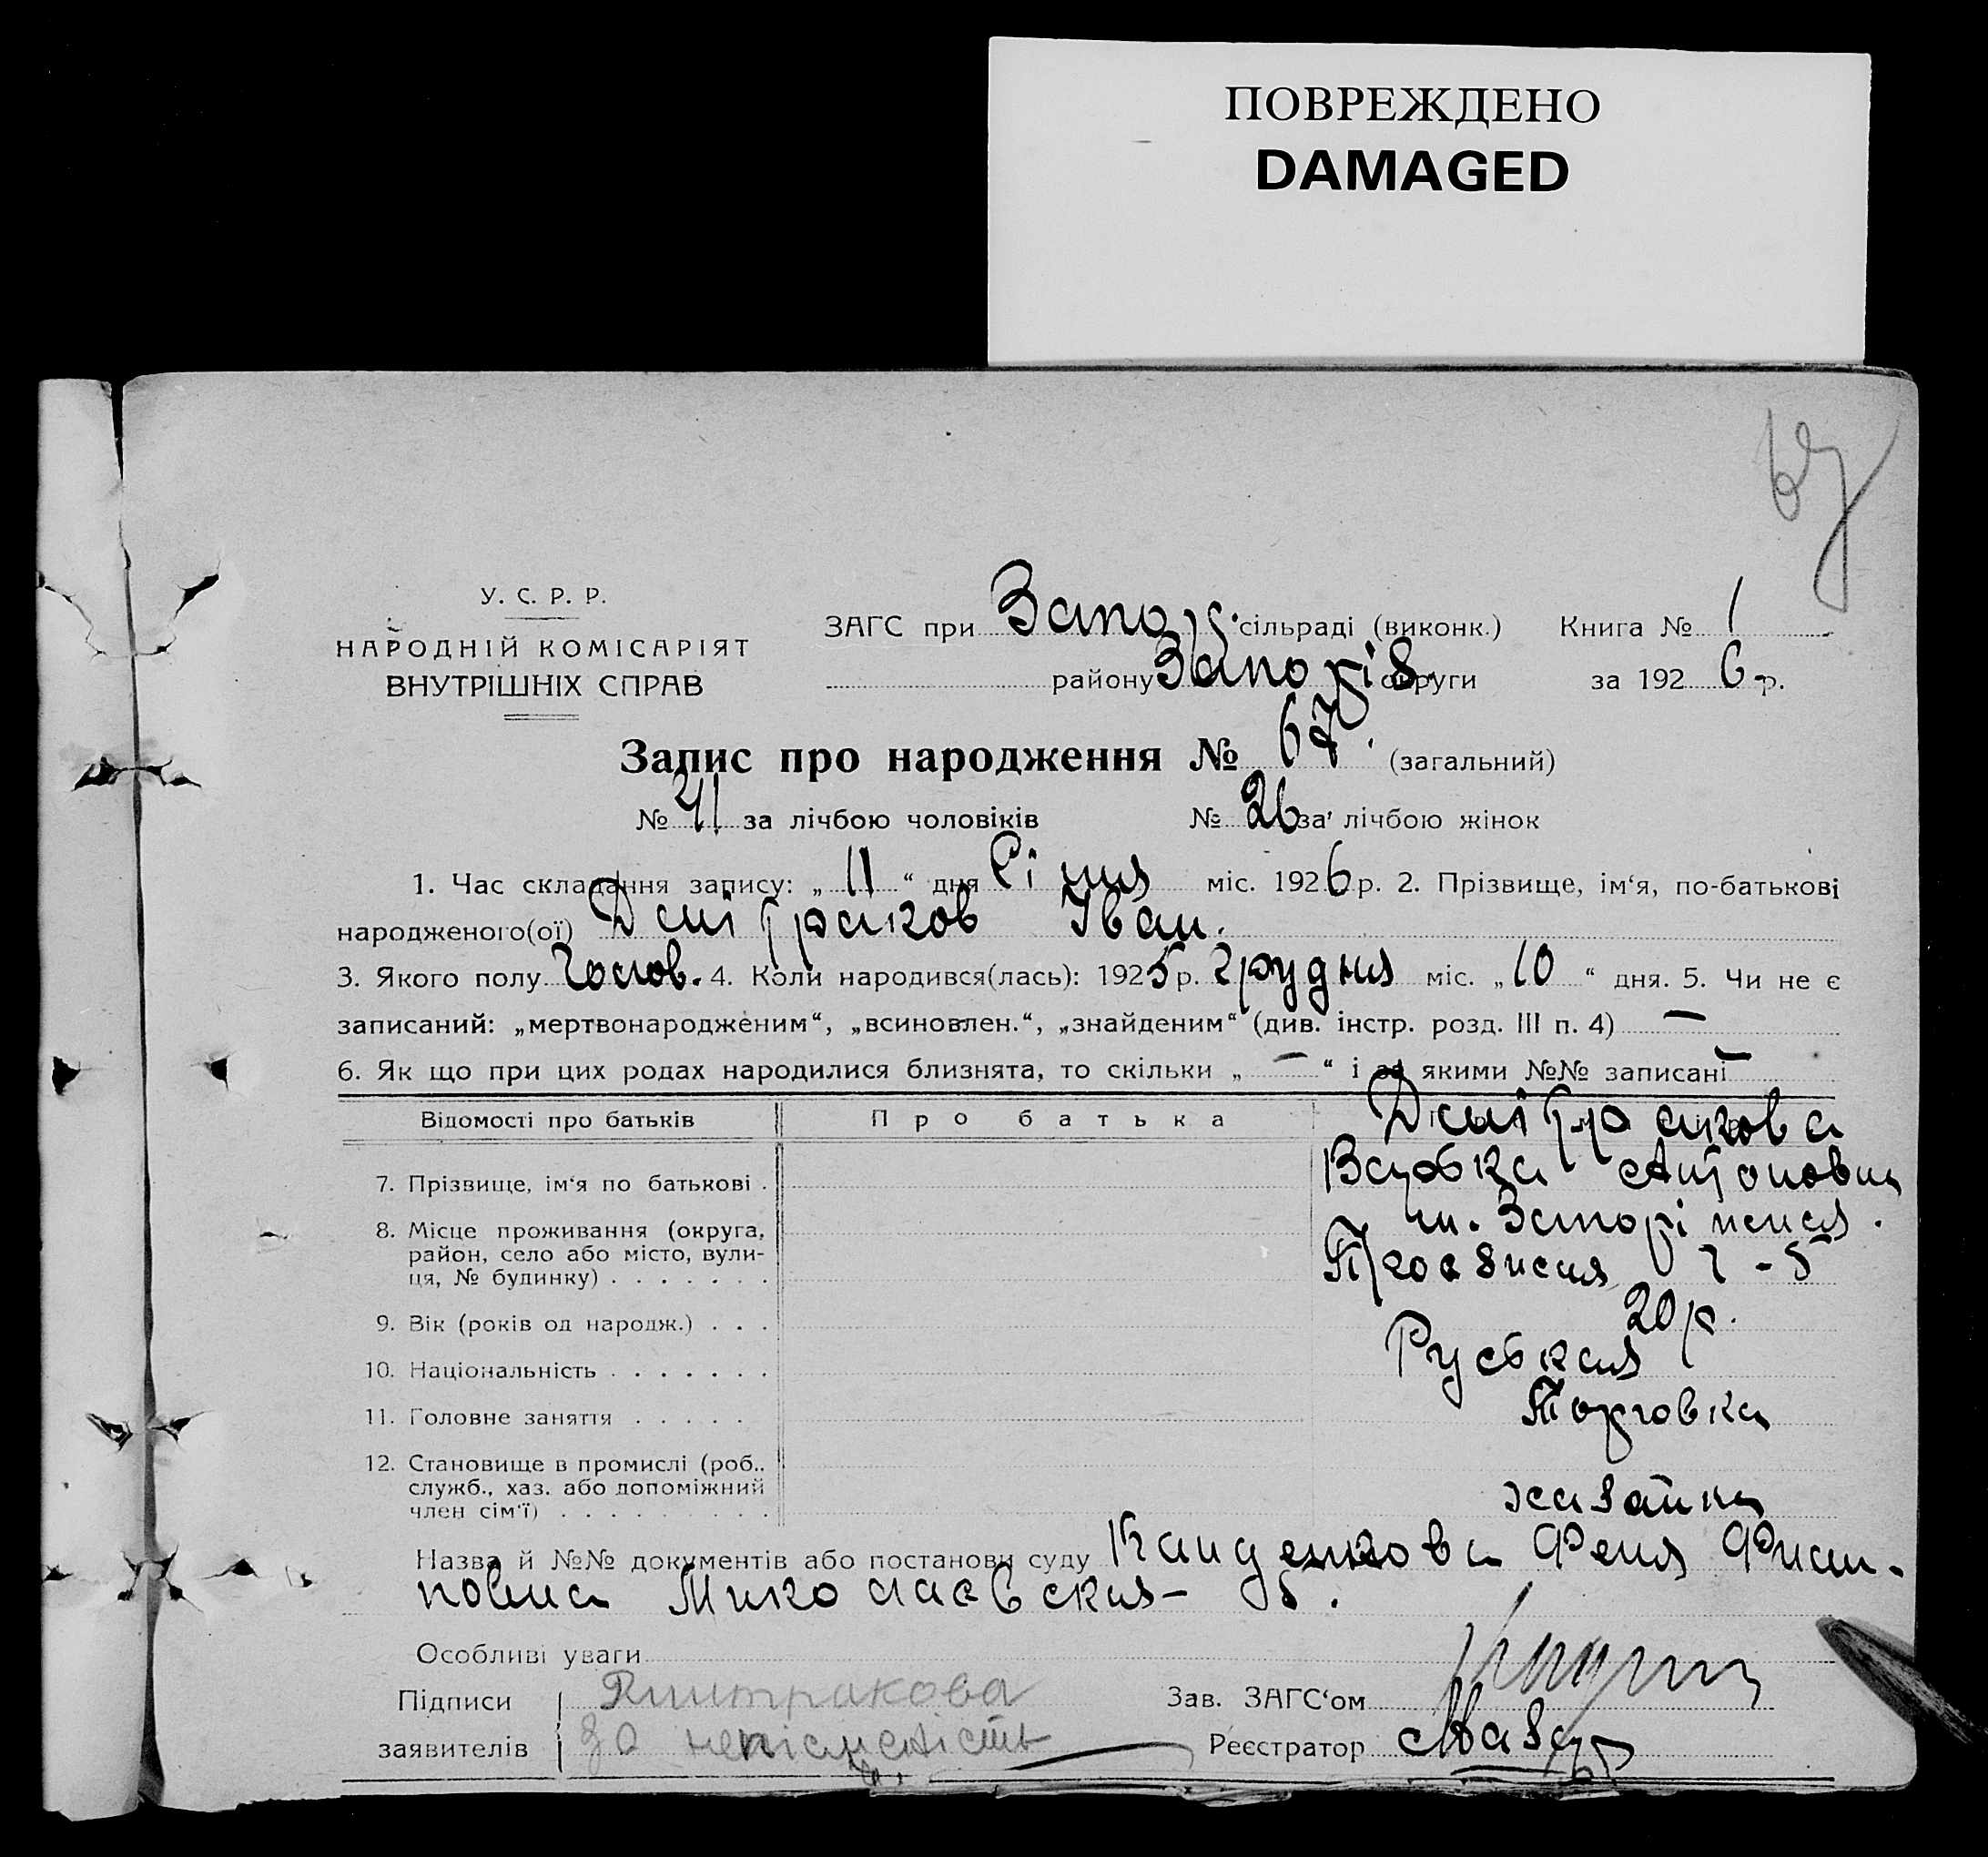 ПОВРЕЖДЕНО
DAMAGED
67
У. С. Р. Р.
НАРОДНІЙ КОМІСАРІЯТ
ВНУТРІШНІХ СПРАВ
ЗАГС при Запор. сільраді (виконк.) Книга № 1
району Запоріз. округи за 1926 р.
Запис про народження № 67. (загальний)
№ 41 за лічбою чоловіків № 26 за лічбою жінок
1. Час складання запису: „ 11 “ дня Січня міс. 1926 р. 2. Прізвище, ім‘я, по-батькові
народженого(ої) Дмітраков Іван.
3. Якого полу Чолов. 4. Коли народився(лась): 1925 р. грудня міс. „ 10 “ дня. 5. Чи не є
записаний: „мертвонародженим“, „всиновлен.“, „знайденим“ (див. інстр. розд. III п. 4) —
6. Як що при цих родах народилися близнята, то скільки „ — “ і за якими №№ записані —
Відомості про батьків Про батька
Дмітракова
7. Прізвище, ім‘я по батькові . Варька Антоновна
8. Місце проживання (округа, район, село або місто, вули-ця, № будинку) . . . . . . . м. Запоріжжя.
9. Вік (років од народж.) . . . 20 р.
10. Національність . . . . . . . Руськая
11. Головне заняття . . . . . Торговка
12. Становище в промислі (роб.. служб., хаз. або допоміжний член сім‘ї) . . . . . . . . . хазайка
Назва й №№ документів або постанови суду Феня Филип-
повна Миколаевская-
Особливі уваги
Підписи Дмитракова Зав. ЗАГС‘ом
заявителів за непісменість Реєстратор